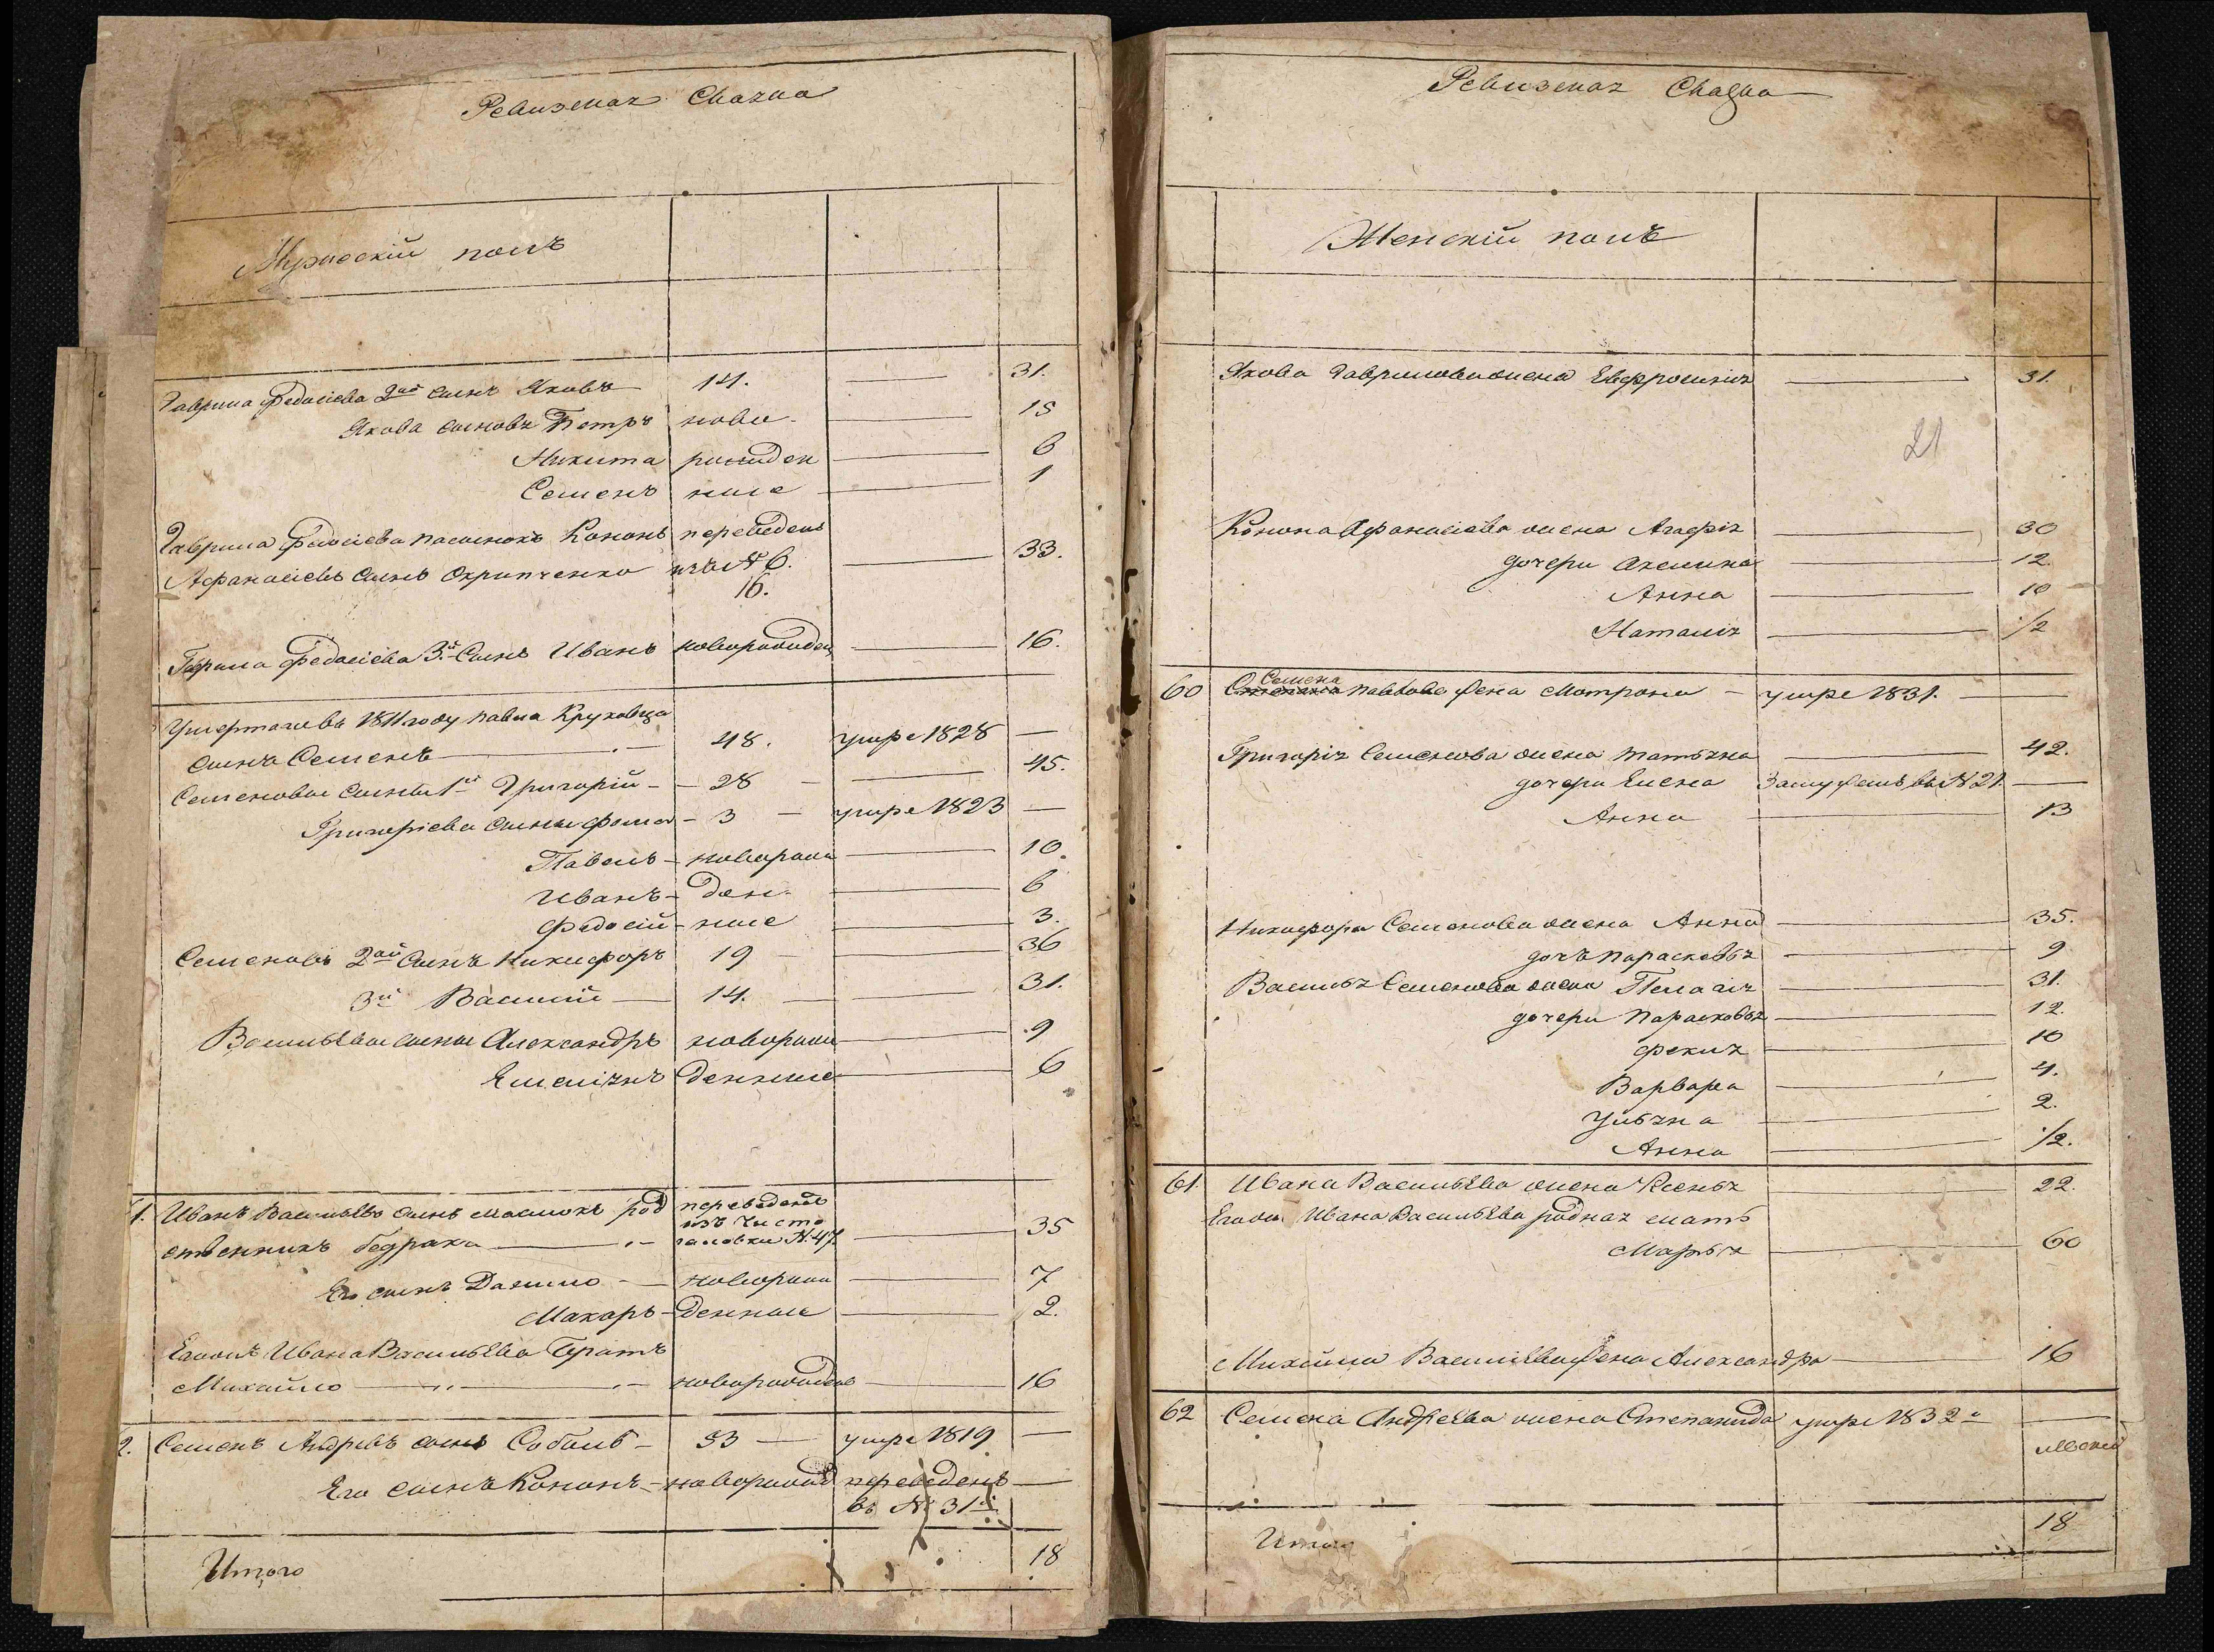 Ревизская Сказка
Мужеский полъ
Гаврила Федосіева 2ой сынъ Яковъ 14. 31.
Якова сыновья Петръ ново- 15
Никита рожден 6
Семенъ ные 1
Гаврила Федосіева пасынокъ Кононъ переведенъ
Афанасіевъ сынъ Скрипченко изъ №6. 33.
16.
Гаврила Федосіева 3й Сынъ Иванъ новорожден 16.
Умершаго въ 1811 году Павла Круховца
сынъ Семенъ 48. умре 1828
Семеновы сыны 1й Григорій 28 45.
Григоріева сыны Фома 3 умре 1823
Павелъ новорож 10.
Иванъ ден- 6
Федосій ные 3.
Семеновъ 2ой Сынъ Никифоръ 19 36
3й Василій 14. 31.
Васильевы сыны Александръ новорож 9
Емеліянъ денные 6
1. Иванъ Васильевъ сынъ род переведенъ
изъ Чисто
ственникъ Бедрака галовки №.47. 35
Его сынъ Данило новорож 7
Макаръ денные 2.
Егожъ Ивана Васильева Братъ
Михайло новорожденъ 16
2. Семенъ Андреевъ сынъ Соболь 53 умре 1819
Его сынъ Кононъ новорожд переведенъ
въ № 31й
Итого 18
Ревизская Сказка
Женскій полъ
Якова Гаврилова жена Евфросинія 31.
21
Конона Афанасіева жена Агафія 30
дочери Акелина 12.
Анна 10
Наталія 1/2
Семена
60 Степана Павлова жена Матрона умре 1831.
Григорія Семенова жена Татьяна 42.
дочери Елена Замужемъ въ №21.
Анна 13
Никифора Семенова жена Анна 35.
дочь Парасковья 9
Василья Семенова жена Пелагія 31.
дочери Парасковья 12.
Фекля 10
Варвара 4.
Ульяна 2.
Анна 1/2.
61. Ивана Васильева жена Ксенья 22.
Егожъ Ивана Васильева родная мать
Марья 60
Михайла Васильева жена Александра 16
62 Семена Андреева жена Степанида умре 1832
18
Итого